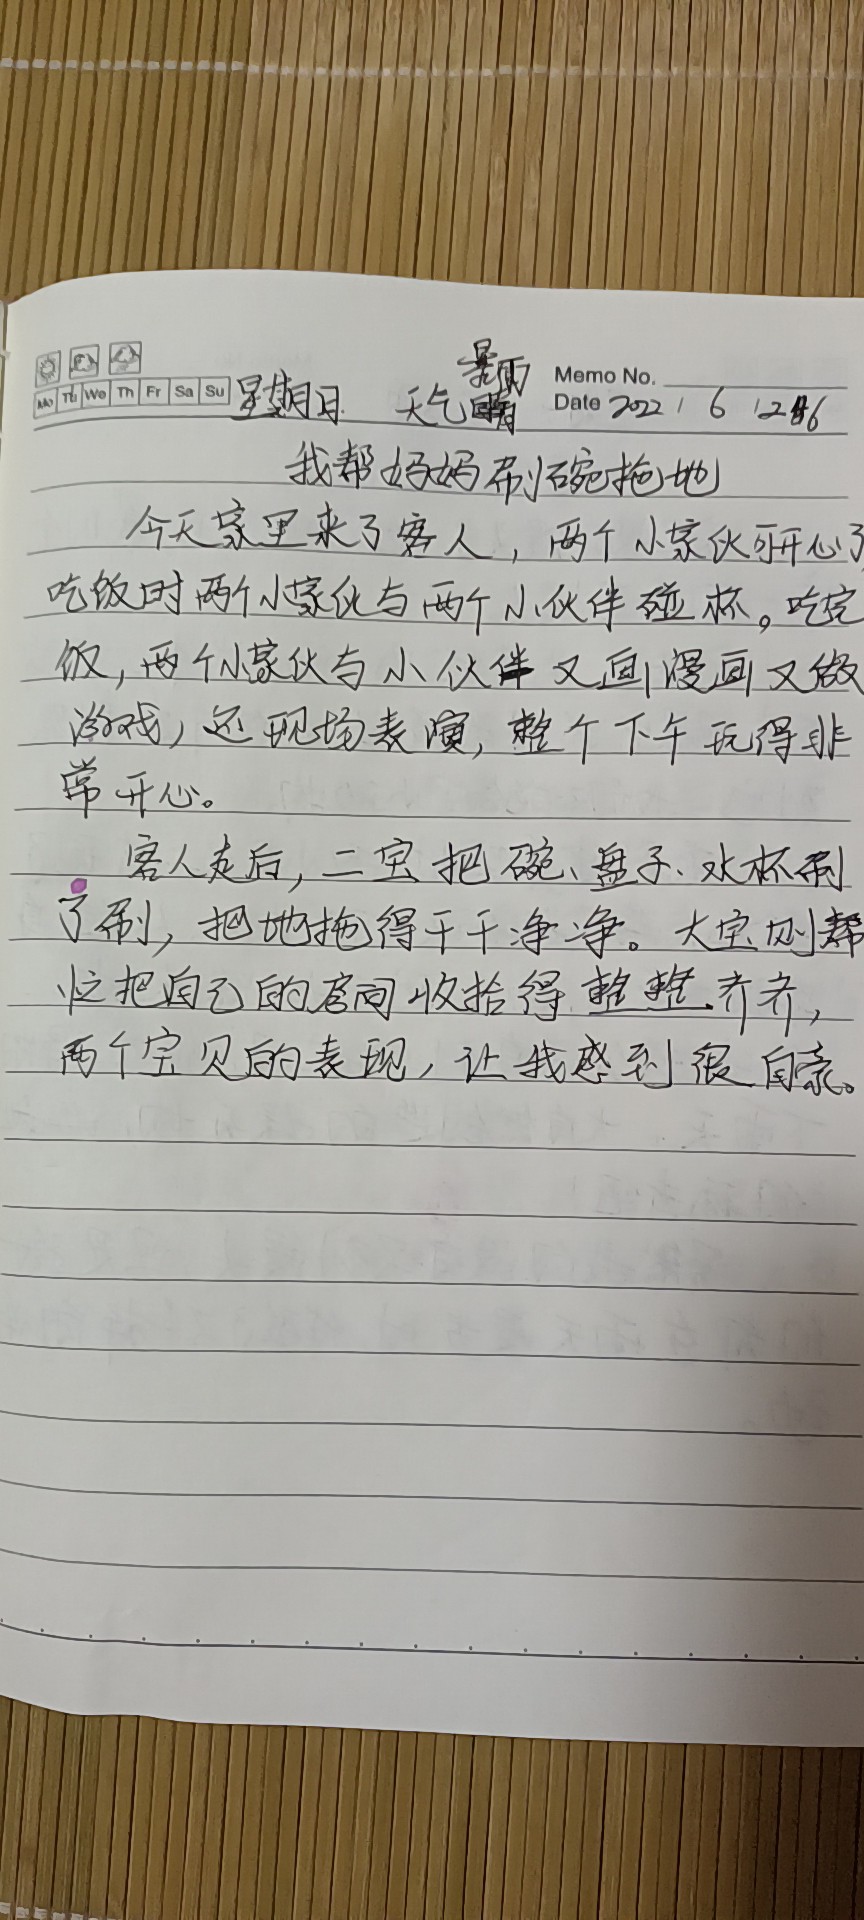 Mo Tu We Th Fr Sa Su 星期日 天气 暴雨 Memo No.
Date 2022 / 6 / 26
我帮妈妈刷碗拖地
今天家里来了客人，两个小家伙可开心了，
吃饭时两个小家伙与两个小伙伴碰杯。吃完
饭，两个小家伙与小伙伴又画漫画又做
游戏，还现场表演，整个下午玩得非
常开心。
客人走后，二宝把碗、盘子、水杯刷
了刷，把地拖得干干净净。大宝则帮
忙把自己的房间收拾得整整齐齐，
两个宝贝的表现，让我感到很自豪。